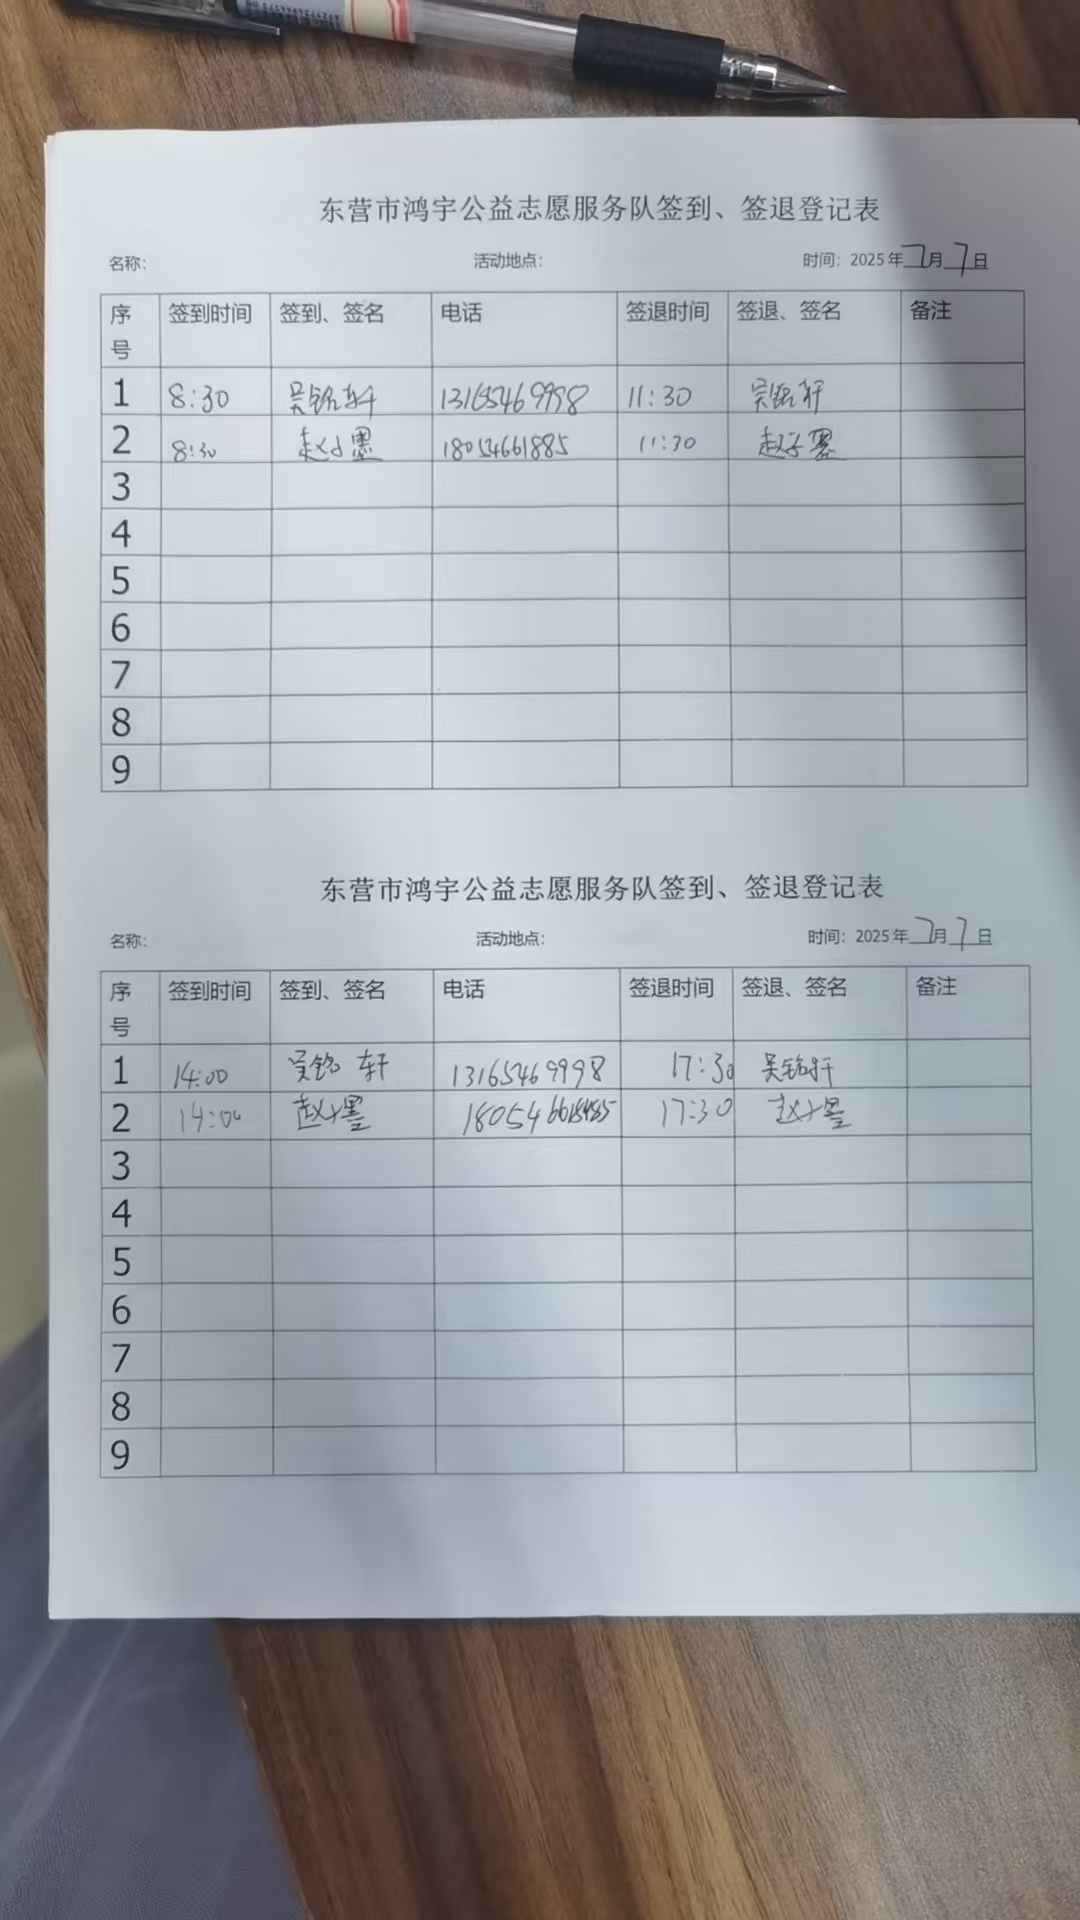 东营市鸿宇公益志愿服务队签到、签退登记表
名称: 活动地点: 时间: 2025年7月7日
序号 签到时间 签到、签名 电话 签退时间 签退、签名 备注
1 8:30 吴铭轩 13165469998 11:30 吴铭轩
2 8:30 赵子墨 18054661885 11:30 赵子墨
3
4
5
6
7
8
9
东营市鸿宇公益志愿服务队签到、签退登记表
名称: 活动地点: 时间: 2025年7月7日
序号 签到时间 签到、签名 电话 签退时间 签退、签名 备注
1 14:00 吴铭轩 13165469998 17:30 吴铭轩
2 14:00 赵子墨 17:30 赵子墨
3
4
5
6
7
8
9